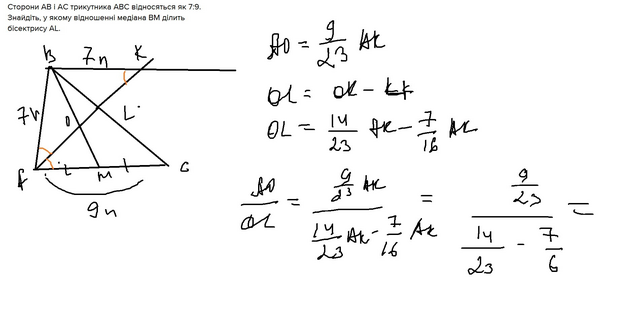 Сторони АВ і АС трикутника АВС відносяться як 7:9.
Знайдіть, у якому відношенні медіана ВМ ділить
бісектрису AL.
B 7n K
7n
O
L
A
M
C
9n
AO = 9/23 AK
OL = OK - LK
OL = 14/23 AK - 7/16 AK
AO/OL = (9/23 AK)/(14/23 AK - 7/16 AK) = (9/23)/(14/23 - 7/6) =